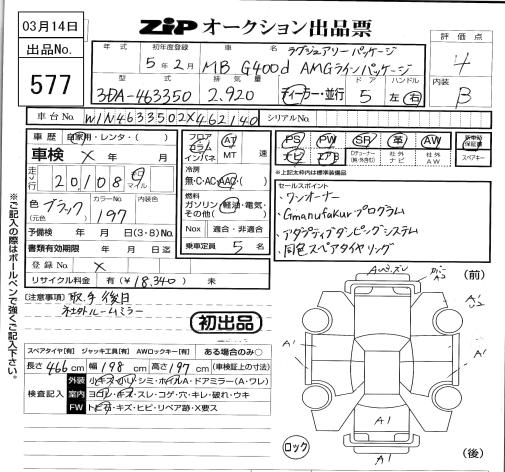 03月14日
ZIP オークション出品票
出品No.
577
年式 初年度登録 車名 ラグジュアリーパッケージ
5年2月 MB G400d AMGラインパッケージ
型式 排気量 ドア ハンドル
3DA-463350 2.920 ディーラー・並行 5 左 右
評価点
4
内装
B
車台No. W1N4633502X462140 シリアルNo.
車歴 自家用・レンタ・( )
車検 × 年 月
走行 20,108 マイル
色(元色) ブラック カラーNo. 197 内装色
予備検 年 月 日(3・8)No.
書類有効期限 年 月 日迄
登録No. ×
リサイクル料金 有(¥18,340) 未
フロア コラム インパネ AT MT 速
冷房 無・C・AC・AAC・( )
燃料 ガソリン・軽油・電気・その他( )
Nox 適合・非適合
乗車定員 5 名
PS PW SR 革 AW 新車時保証書
ナビ エアB Dチューナー(純・外含む) 社外ナビ 社外AW スペアキー
※上記太枠内は標準装備品
セールスポイント
・ワンオーナー
・Gmanufakturプログラム
・アダプティブダンピングシステム
・同色スペアタイヤリング
[注意事項] 取手後日
社外ルームミラー
初出品
スペアタイヤ[有] ジャッキ工具[有] AWロックキー[有] ある場合のみ○
長さ 466 cm 幅 198 cm 高さ 197 cm (車検証上の寸法)
検査記入 外装 小キズ・小凹・シミ・ホイルA・ドアミラー(A・ワレ)
室内 ヨゴレ・キズ・スレ・コゲ・穴・キレ・破れ・ウキ
FW トビ石・キズ・ヒビ・リペア跡・X要ス
※ご記入の際はボールペンで強くご記入下さい。
(前)
A'
A'
A'
A1
A1
ロック
(後)